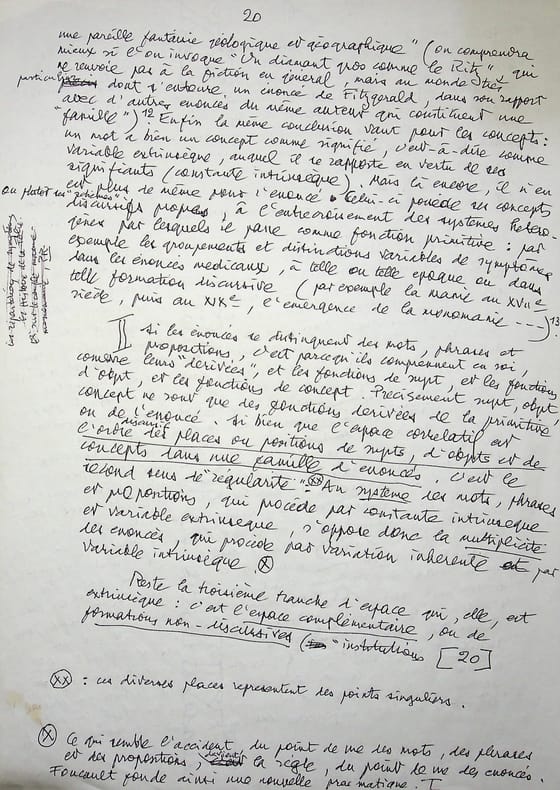 20
une pareille fantaisie géologique et géographique" (on comprendra
mieux si l'on invoque "Un diamant gros comme le Ritz" qui
ne renvoie pas à la fiction en général, mais au monde très
particulier dont s'entoure un énoncé de Fitzgerald, dans son rapport
avec d'autres énoncés du même auteur qui constituent une
"famille")12. Enfin la même conclusion vaut pour les concepts:
un mot a bien un concept comme signifié, c'est-à-dire comme
variable extrinsèque, auquel il se rapporte en vertu de ses
signifiants (constante intrinsèque). Mais là encore, il n'en
est plus de même pour l'énoncé. Celui-ci possède ses concepts
ou plutôt ses "schèmes"
discursifs propres, à l'entrecroisement des systèmes hétéro-
gènes par lesquels il passe comme fonction primitive : par
exemple les groupements et distinctions variables de symptômes
dans les énoncés médicaux, à telle ou telle époque ou dans
telle formation discursive (par exemple la manie au XVIIe
siècle, puis au XIXe, l'émergence de la monomanie ---)13.
II Si les énoncés se distinguent des mots, phrases et
propositions, c'est parcequ'ils comprennent en soi,
comme leurs "dérivées", et les fonctions de sujet, et les fonctions
d'objet, et les fonctions de concept. Précisément sujet, objet,
concept ne sont que des fonctions dérivées de la primitive
ou de l'énoncé. Si bien que l'espace corrélatif est
l'ordre discursif des places ou positions de sujets, d'objets et de
concepts dans une famille d'énoncés. C'est le
second sens de "régularité". (XX) Au système des mots, phrases
et propositions, qui procède par constante intrinsèque
et variable extrinsèque, s'oppose donc la multiplicité
des énoncés, qui procède par variation inhérente et par
variable intrinsèque. (X)
Reste la troisième tranche d'espace qui, elle, est
extrinsèque : c'est l'espace complémentaire, ou de
formations non-discursives ("institutions [20]
(XX) : ces diverses places représentent des points singuliers.
(X) Ce qui semble l'accident, du point de vue des mots, des phrases
et des propositions, devient la règle, du point de vue des énoncés.
Foucault fonde ainsi une nouvelle pragmatique. I